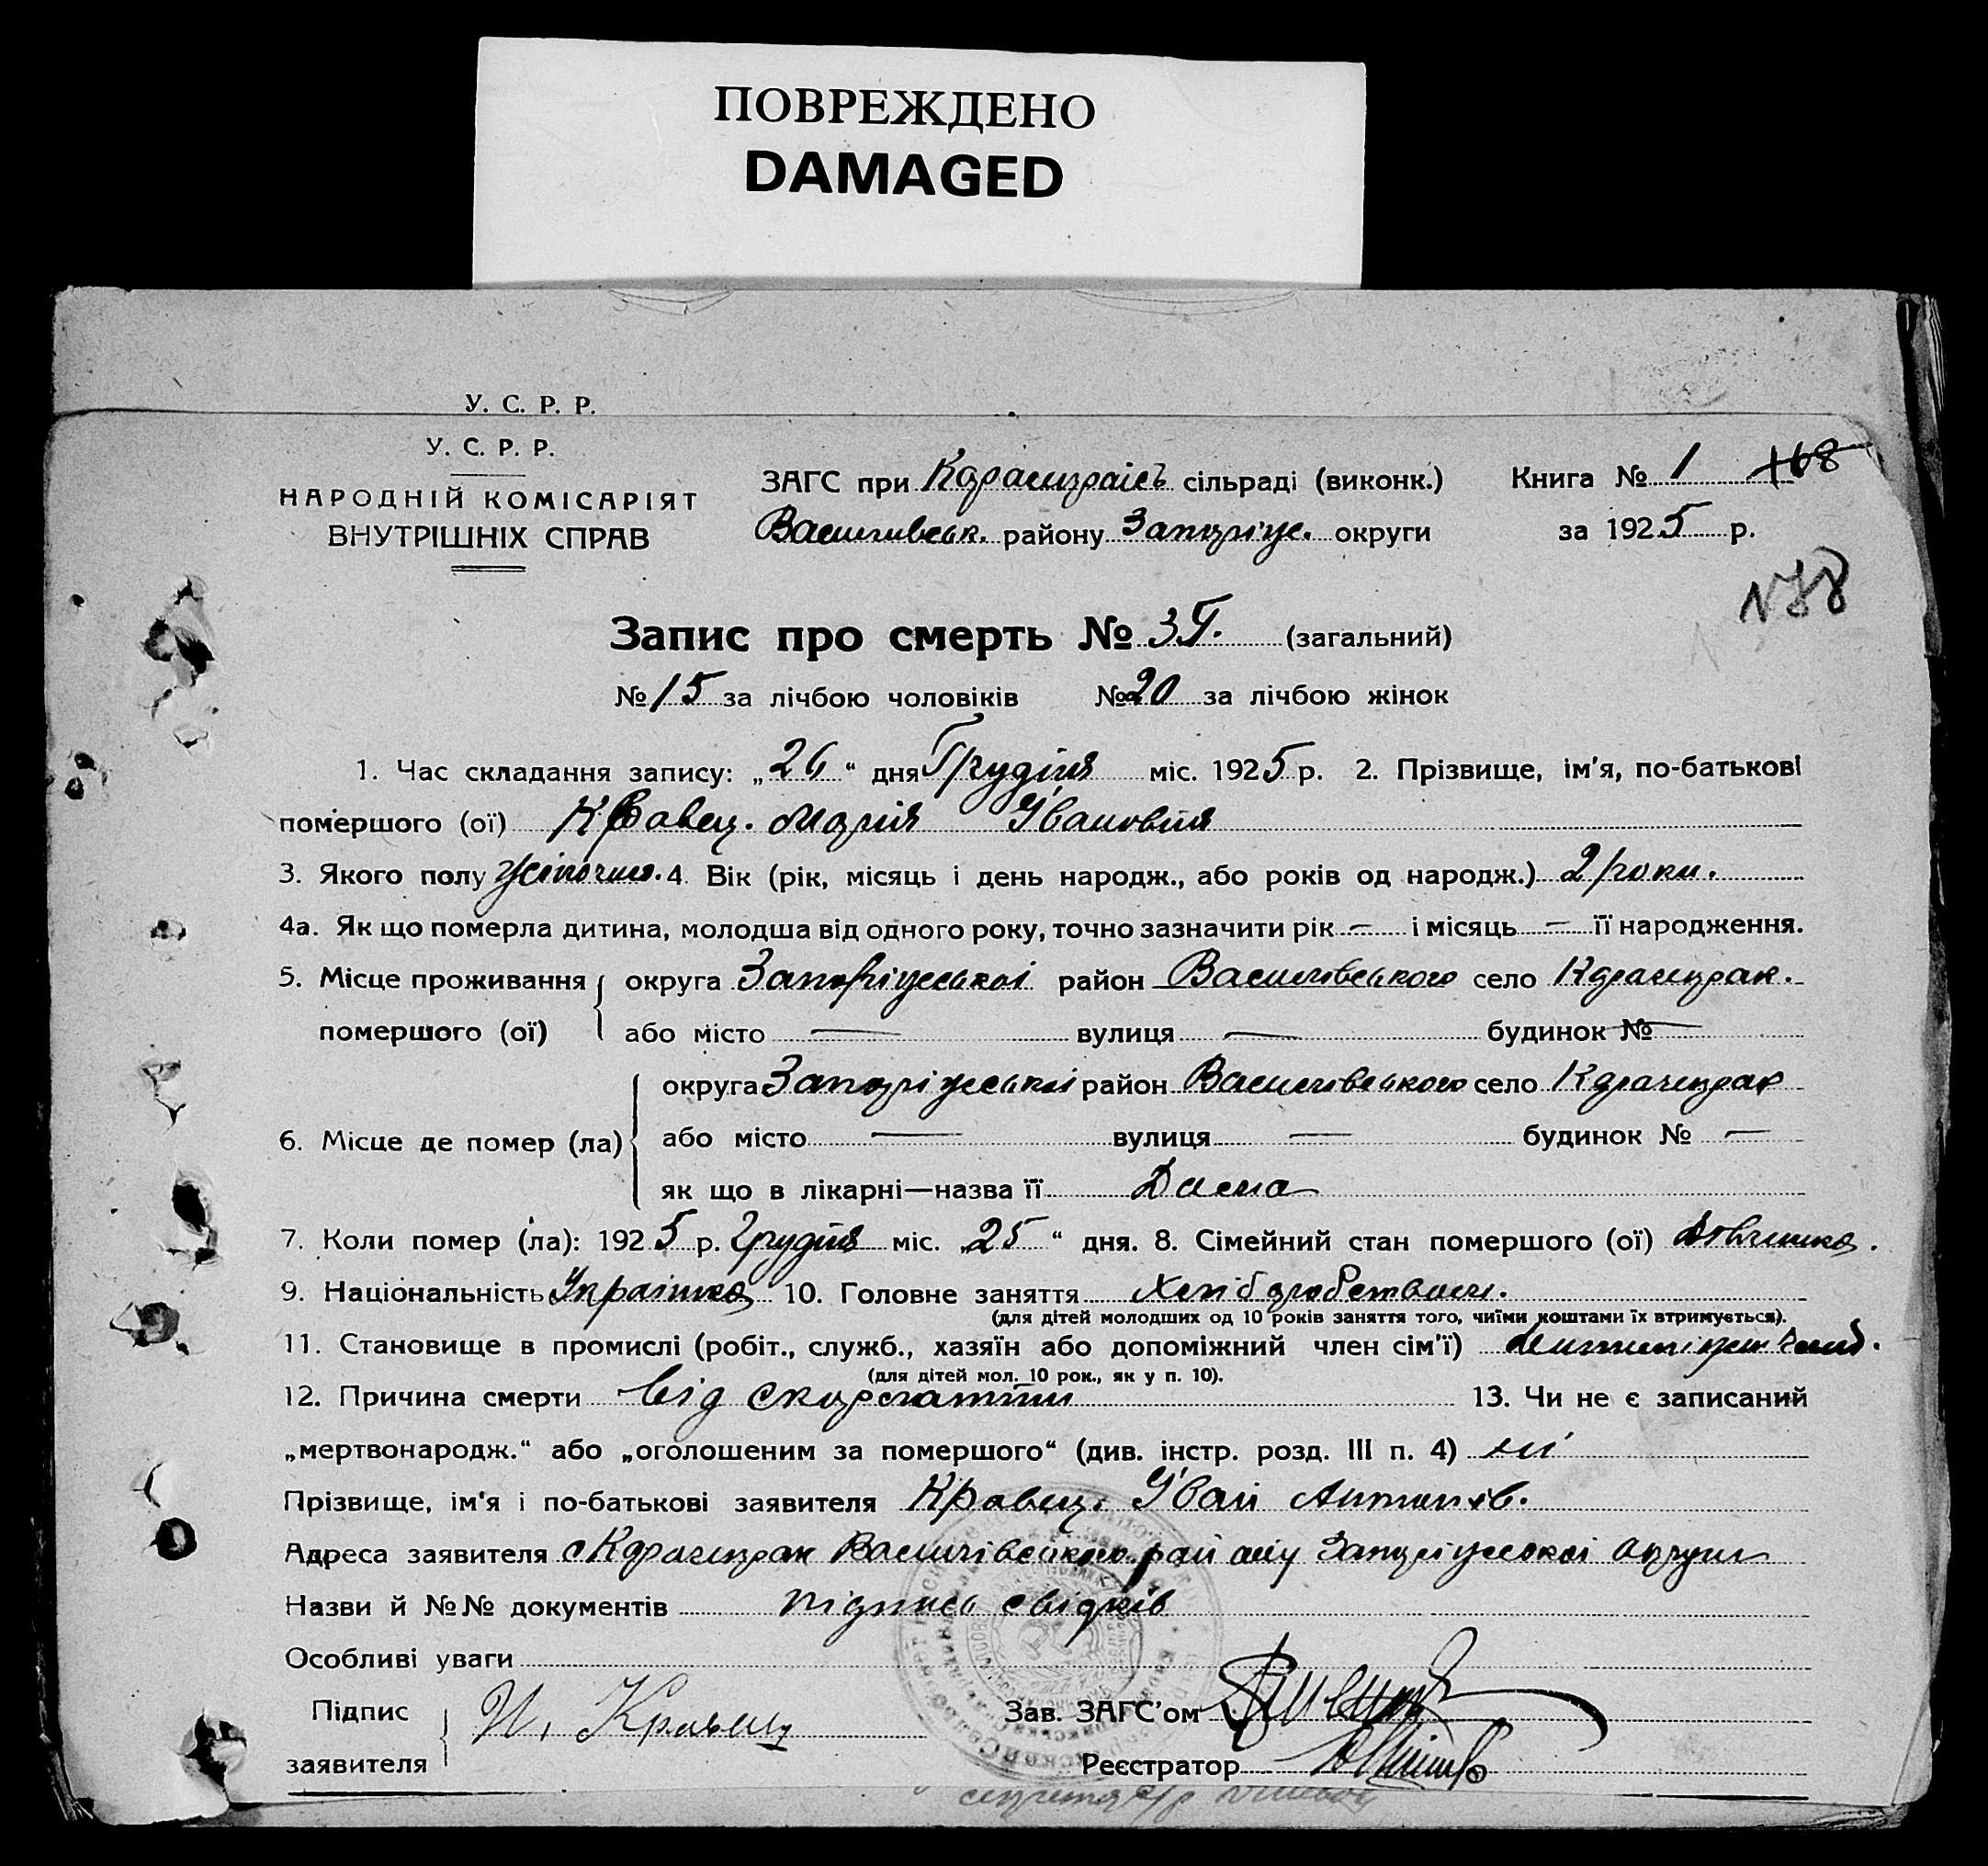 ПОВРЕЖДЕНО
DAMAGED
У. С. Р. Р.
У. С. Р. Р.
НАРОДНІЙ КОМІСАРІЯТ
ВНУТРІШНІХ СПРАВ
ЗАГС при сільраді (виконк.) Книга № 1 168
району округи за 1925 р.
№78
Запис про смерть № 35. (загальний)
№ 15 за лічбою чоловіків № 20 за лічбою жінок
1. Час складання запису: „26“ дня Грудіня міс. 1925 р. 2. Прізвище, ім'я, по-батькові
помершого (ої) Кравец. Марія Івановня
3. Якого полу 4. Вік (рік, місяць і день народж., або років од народж.) 2 роки.
4а. Як що померла дитина, молодша від одного року, точно зазначити рік — і місяць — її народження.
5. Місце проживання округа Запоріжської район Василівського село Карачекрак.
помершого (ої) або місто — вулиця — будинок № —
округа Запоріжській район Василівського село Карачекрак
6. Місце де помер (ла) або місто — вулиця — будинок № —
як що в лікарні—назва її Дома
7. Коли помер (ла): 1925 р. Грудня міс. „25“ дня. 8. Сімейний стан помершого (ої)
9. Національність Українка 10. Головне заняття
(для дітей молодших од 10 років заняття того, чиїми коштами їх втримується).
11. Становище в промислі (робіт., служб., хазяїн або допоміжний член сім'ї)
(для дітей мол. 10 рок., як у п. 10).
12. Причина смерти від скарлатіни 13. Чи не є записаний
„мертвонародж.“ або „оголошеним за помершого“ (див. інстр. розд. III п. 4) ні
Прізвище, ім'я і по-батькові заявителя Кравец. Іван
Адреса заявителя с Карачекрак Василівського району Запоріжської округи
Назви й №№ документів підпись свідків
Особливі уваги
Підпис И. Кравец Зав. ЗАГС'ом
заявителя Реєстратор